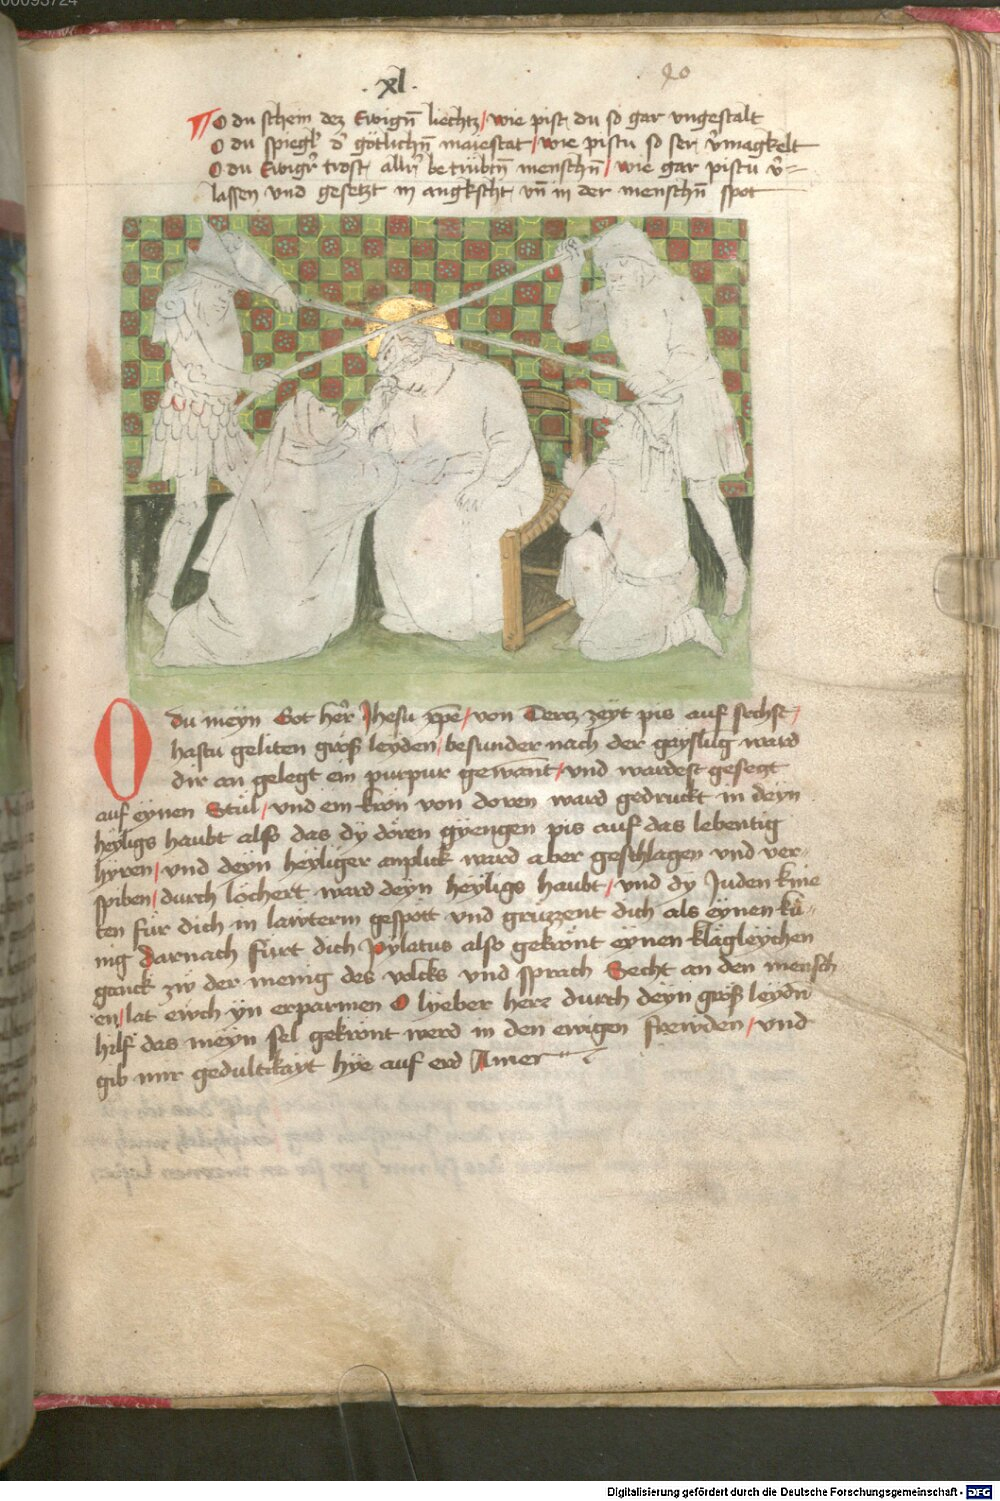 00093724
· xl ·
40
O du schein dez Ewign̄ liechtz / wie pist du so gar vngestalt
O du spiegl' d' götlichn̄ maiestat / wie pistu so ser v'magkelt
O du Ewigr' trost allr' betrübtn̄ menschn̄ / wie gar pistu v'=
lassen vnd gesetzt in angkscht vn̄ in der menschn̄ spot
O du meyn Got her' Jhesu xp̄e / von Tercz zeyt pis auf sechst /
hastu geliten groß leyden / besunder nach der gayslūg ward
dir an gelegt ein purpur gewant / vnd wardest gesetzt
auf eynen Stůl / vnd ein kron von doren ward gedruckt in deyn
heyligs haubt also das dy dören gyengen pis auf das lebentig
hyren / vnd deyn heyliger anplick ward aber geschlagen vnd ver=
spiben / durch löchert ward deyn heyligs haubt / vnd dy Juden knie
ten für dich in lawterm gespött vnd gruzzent dich als eynen kü=
nig Darnach fürt dich Pylatus also gekrönt eynen klägleychen
ganck zw der menig des volcks vnd sprach Secht an den mensch
en / lat ewch yn erparmen O lyeber herr durch deyn groß leydn̄
hilf das meyn sel gekrönt werd in den ewigen frewden / vnd
gib mir gedultikayt hye auf erd Amen
Digitalisierung gefördert durch die Deutsche Forschungsgemeinschaft - DFG